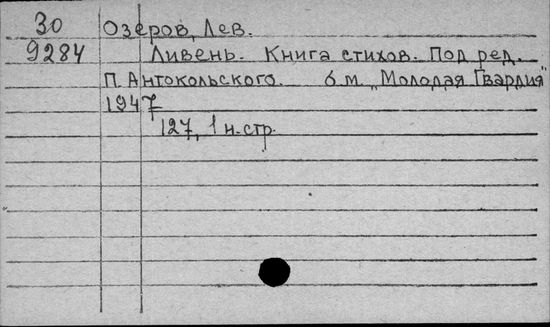 30 Озеров, Лев.
9284 Ливень. Книга стихов. Под ред.
П. Антокольского. б м. „Молодая Гвардия"
1947
127, 1 н. стр.